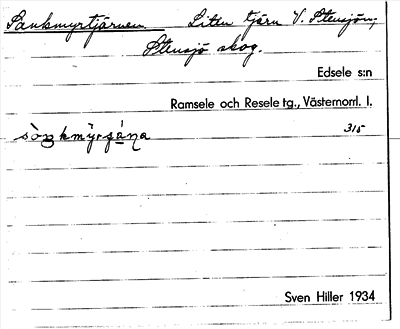 Sankmyrtjärnen. Liten tjärn V. Stensjön;
Stensjö skog.
Edsele s:n
Ramsele och Resele tg., Västernorrl. l.
315
Sven Hiller 1934